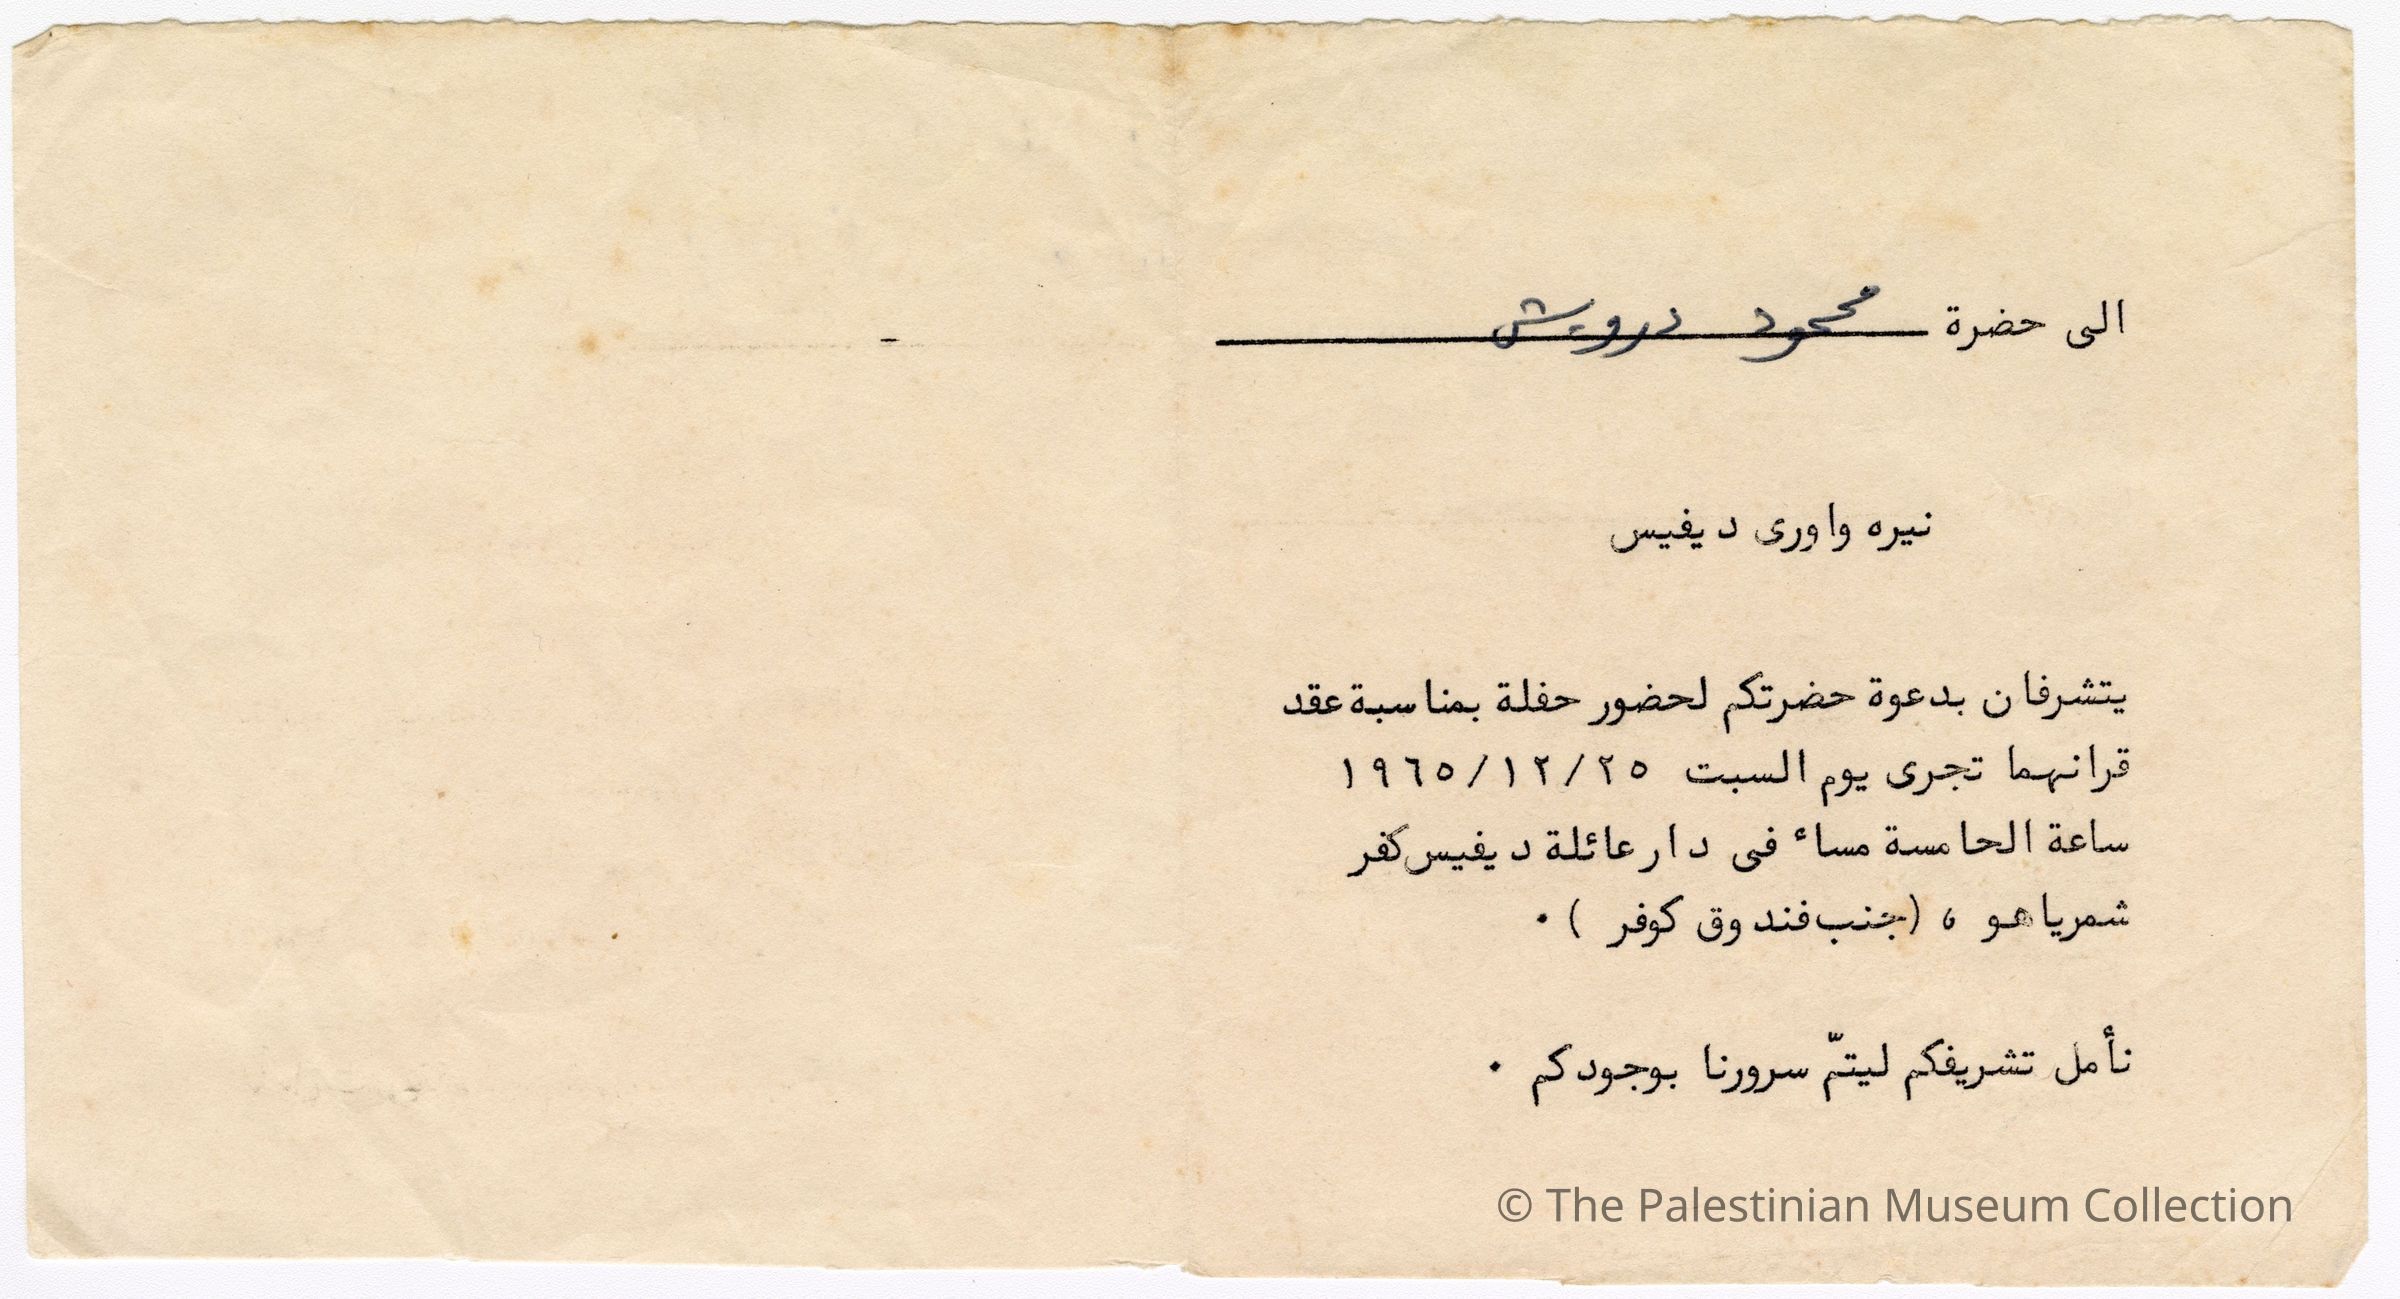 الى حضرة محمود درويش
نيره واورى ديفيس
يتشرفان بدعوة حضرتكم لحضور حفلة بمناسبة عقد
قرانهما تجرى يوم السبت ٢٥/١٢/١٩٦٥
ساعة الحامسة مساء فى دار عائلة ديفيس كفر
شمرياهو ، (جنب فندوق كوفر ) .
نأمل تشريفكم ليتمّ سرورنا بوجودكم .
© The Palestinian Museum Collection